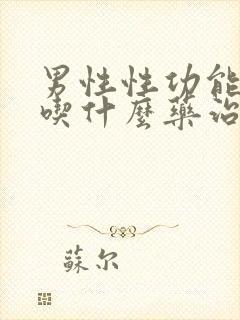 男性性功能
喫什麼藥治
蘇尔